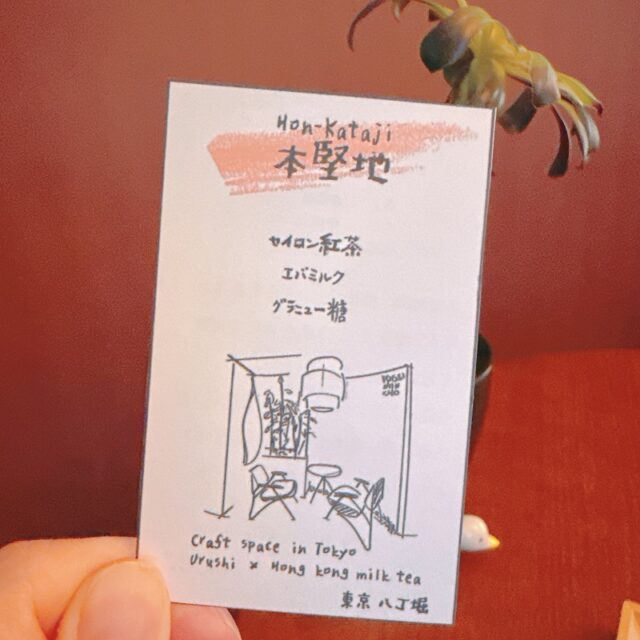 Hon-Kataji
本堅地
セイロン紅茶
エバミルク
グラニュー糖
Craft space in Tokyo
Urushi × Hong kong milk tea
東京 八丁堀